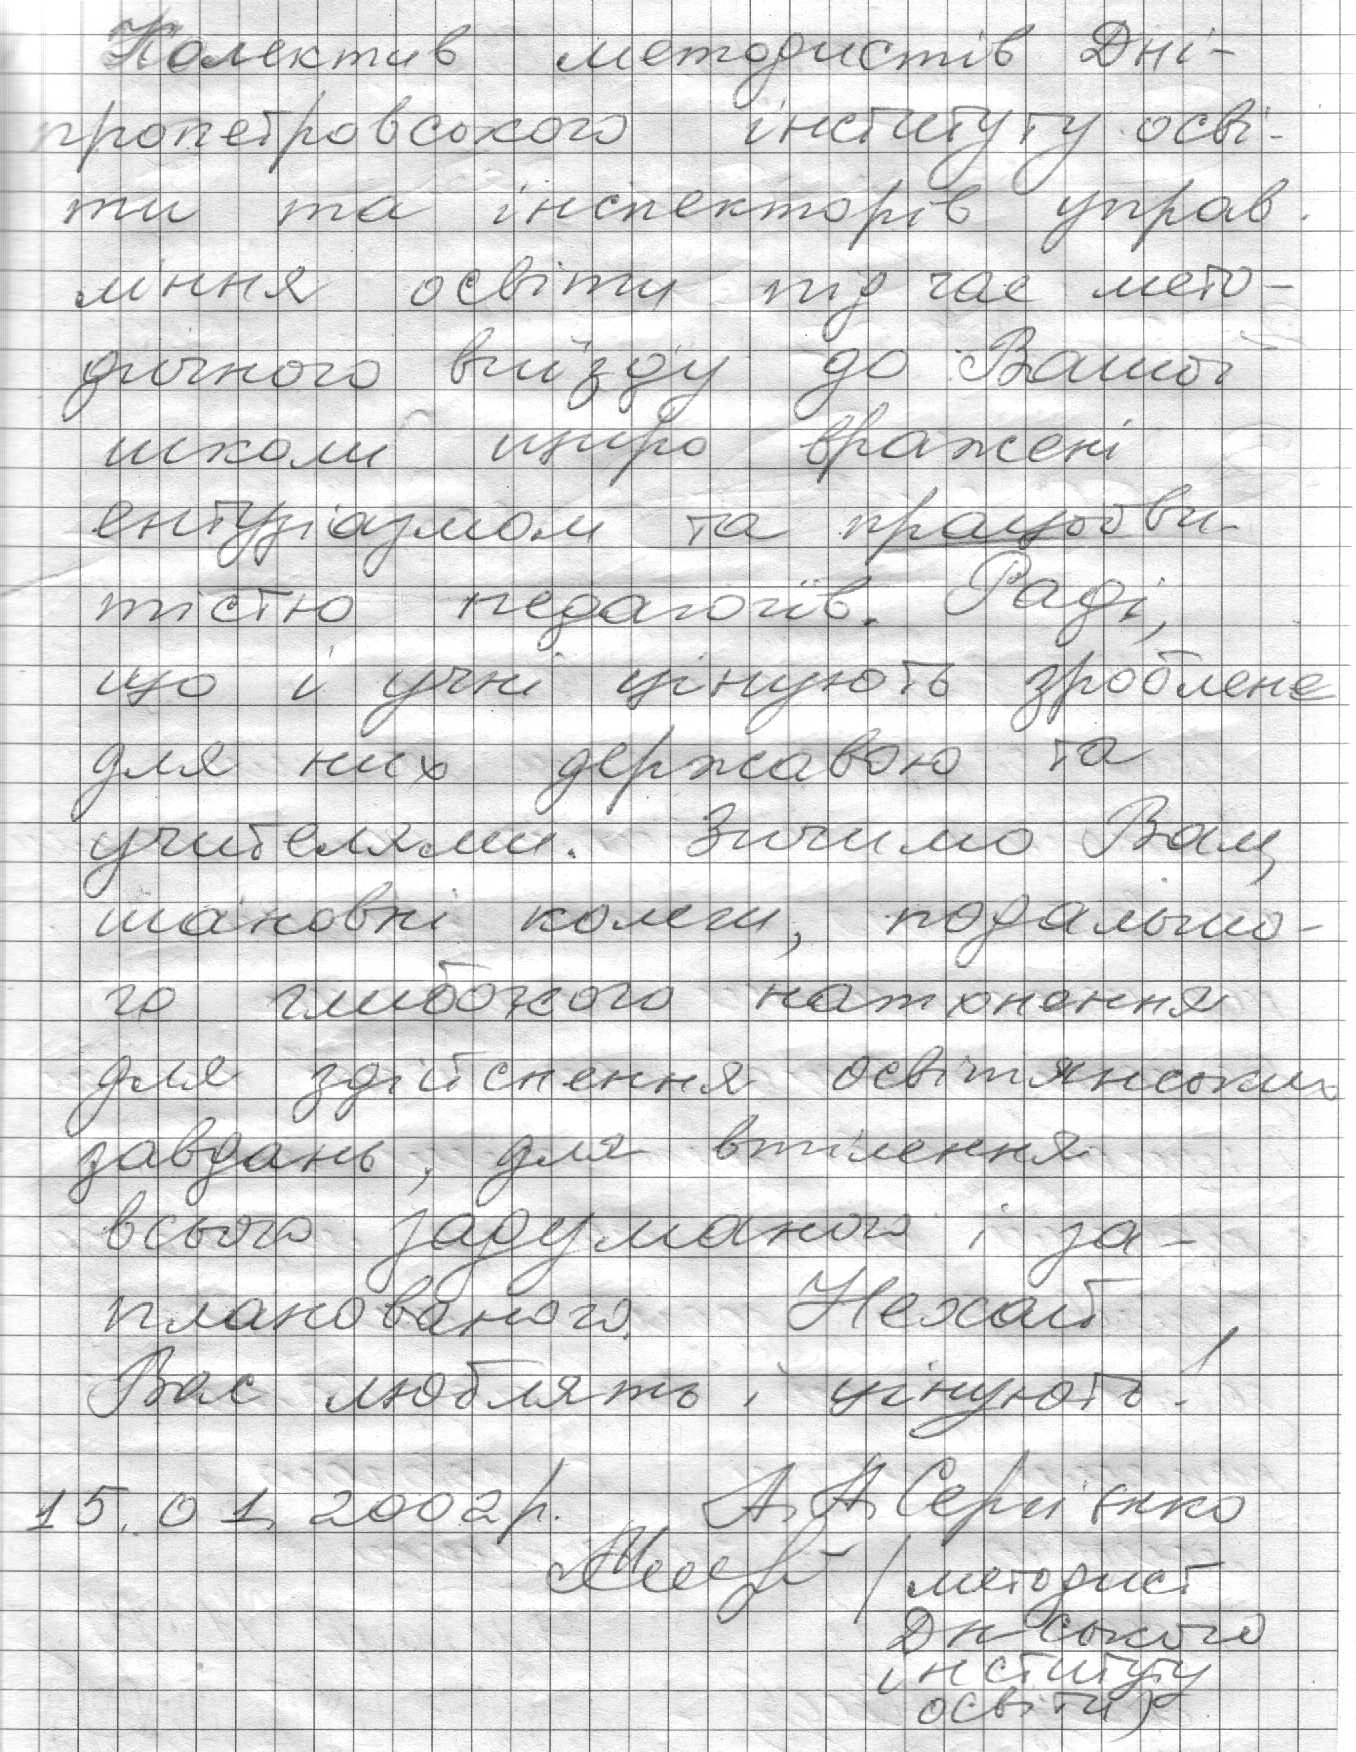 Колектив методистів Дні-
пропетровського інституту осві-
ти та інспекторів управ-
ління освіти під час мето-
дичного виїзду до Вашої
школи щиро вражені
ентузіазмом та працьови-
тістю педагогів. Раді,
що і учні цінують зроблене
для них державою та
учителями. Зичимо Вам,
шановні колеги, подальшо-
го глибокого натхнення
для здійснення освітянських
завдань, для втілення
всього задуманого і за-
планованого. Нехай
Вас люблять і цінують!
15.01.2002р. А.А.Сергієнко
/методист
Дн-ського
інституту
освіти)